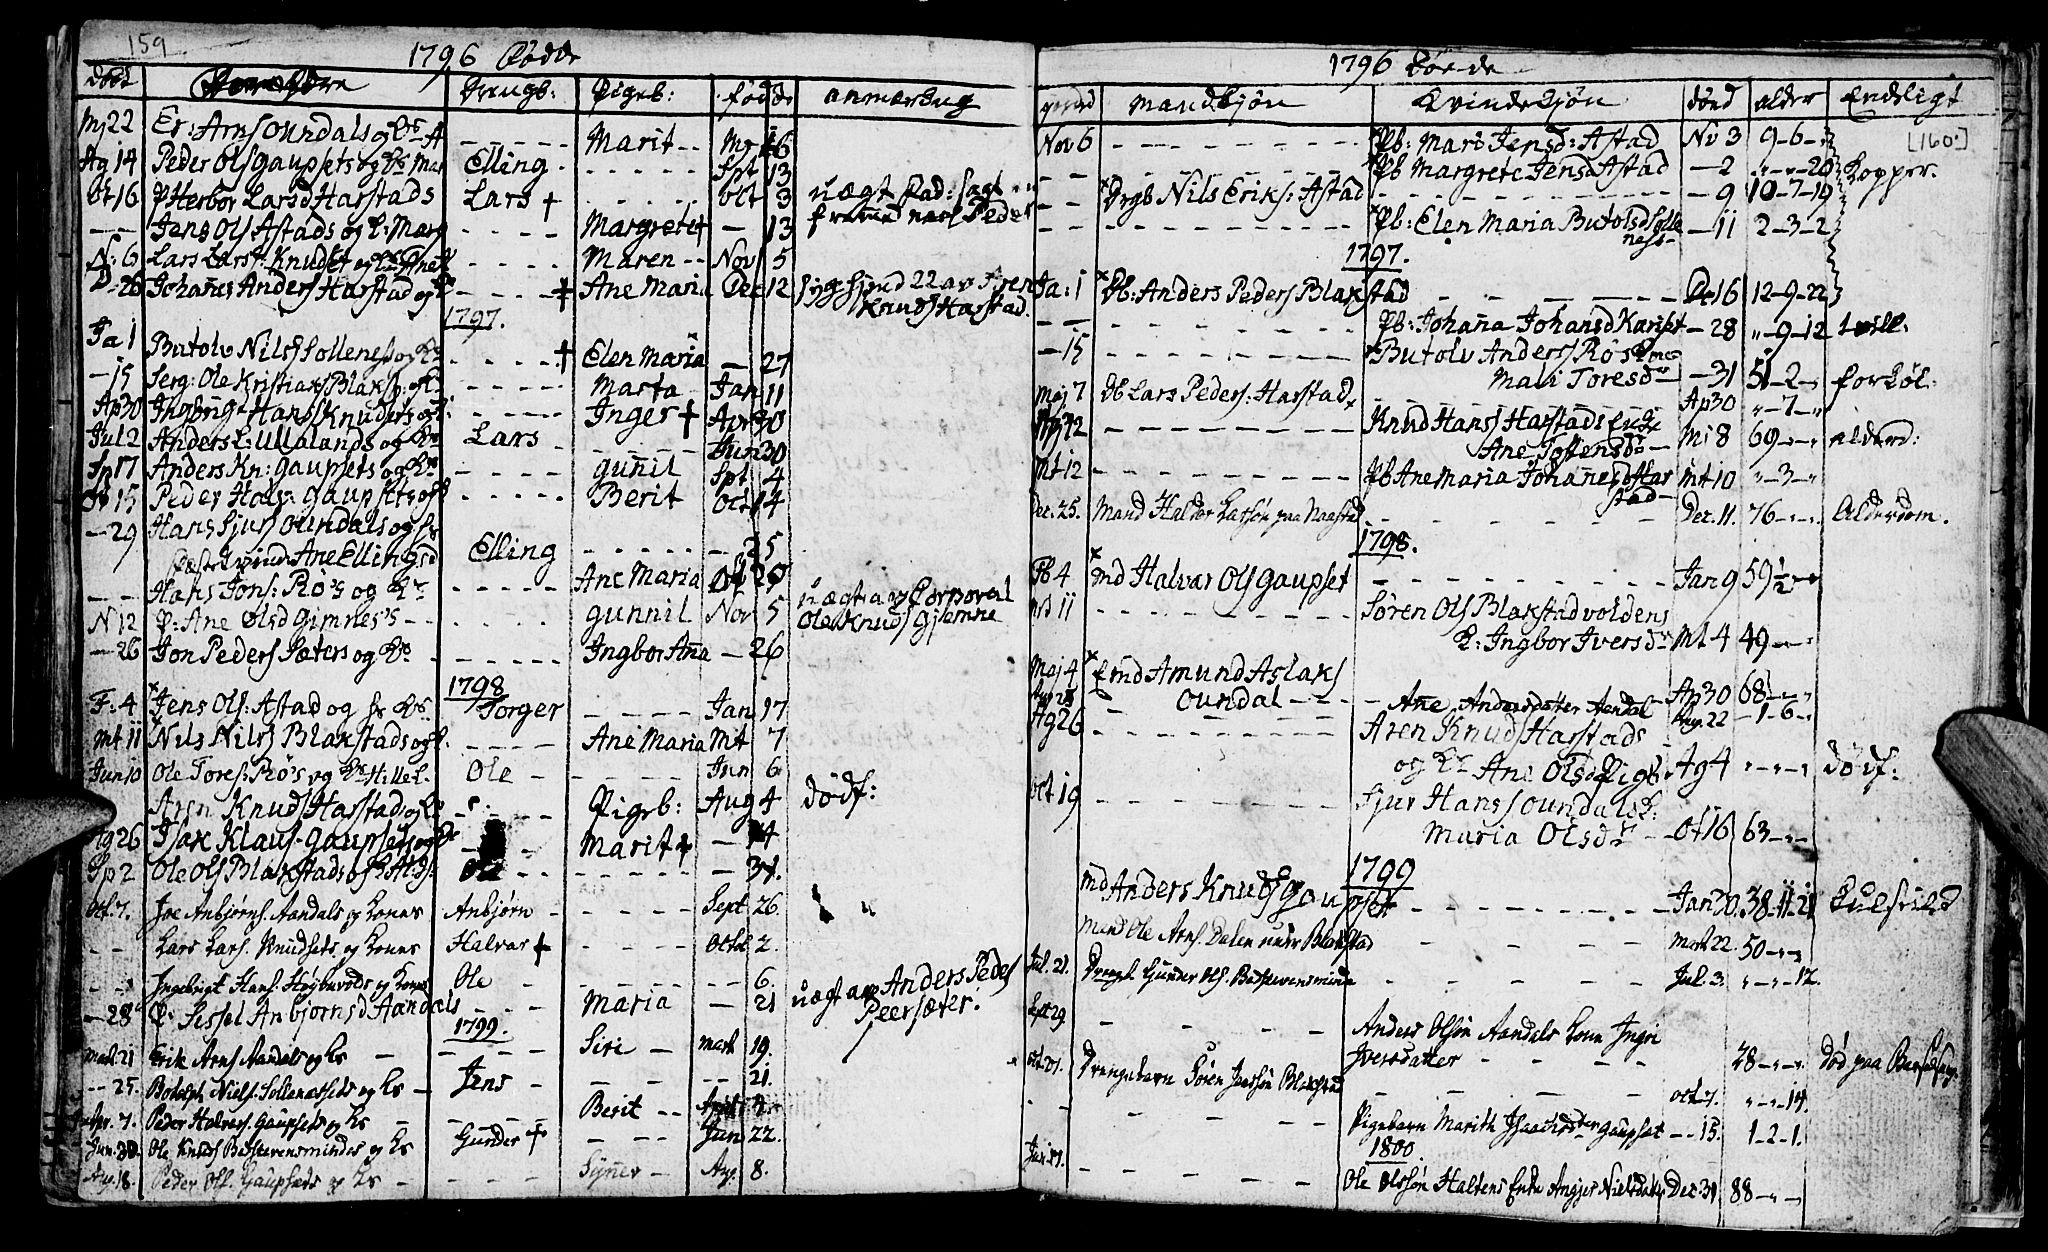 159
1796 Fødde
døbt Forældre Drengb: Pigeb: fødde anmærkng
Mj 22 Er: Arns Oundals og Ks A - - - Marit - - Mr 16
Ag 14 Peder Ols Gaupsets og Ks Mar Elling - - - Spt 13
Ot 16 P Herbor Larsd Harstads Lars + - - - Okt 3 uægt fad: sagt
- - Jens Ols Astads og K: Marg - - - Margrete+ - 13
N: 6 Lars Lars: Knudset og - - - Maren - - Nov 5
D - 26 Johanes Anders Harstad og K - - - + Ane Maria Dec 12
Knuds Harstad.
1797.
Ja 1 Butolv Nils Sollenes og K - - - + Elen Maria - 27
- 15 Serg: Ole Kristians Blaksp: og K - - - Marta Jan 11
Ap 30 Ingbrigt Hans Knudsets og K - - - Inger + Apr 30
Jul 2 Anders L: Ullalands og K Lars - - - Jun 30
Sp 17 Anders Kn: Gaupsets og K - - - gunil Spt 4
Ot 15 Peder Hals: Gaupsets og K - - - Berit Oct 14
- 29 Hans Sjurs Oundals og hs
Fæste Kvinde Ane Ellingsd Elling - - - - 25
- - Hans Jons: Røs og K - - - Ane Maria Ot 20
N 12 P: Ane Olsd Gimnes's - - - gunnil Nov 5 uægt av
Ole Knuds Gjemne
- 26 Jon Peders Sæters og K - - - Ingbor Ana - 26
1798
F: 4 Jens Ols: Astad og hs K Torger - - - Jan 17
Mt 11 Nils Nils Blakstads og K. - - - Ane Maria Mt 7
Jun 10 Ole Tores: Røs og K Hille L. Ole - - - Jun 6
Aren Knuds Harstad og K - - - Pigeb: Aug 4 dødf:
Ag 26 Isak Klaus Gaupsets og K - - Marit + - 14
Sp 2 Ole Ols Blakstads og K Ole - - - - 31.
Oct. 7. Joe Anbjørns. Aandals og Kones Anbjørn - - - Sept 26.
- - Lars Lars. Knudsets og Kones Halvar + - - Octob 2.
- - Ingebrigt Hans. Høybuvods og Kones Ole - - - 6.
- 28 P: Sessel Anbjørnsd Aandals - - - Maria - 21 uægt av Anders Peders
Peersæter.
1799.
Mart. 21 Erik Arns Aandals og Ks - - - Siri - Mart 19.
- - 25. Bodolph Niels. Sollenessets og Ks - Jens - - - - 21.
Apr. 7. Peder Halvors. Gaupsets og Ks - - - Berit - - April 4.
Jun. 30. Ole Knuds Bedstevensmindes og Ks Gunder + - - Jun 22.
Aug. 18. Peder Ols. Gaupsets og Ks - - - Syner - Aug. 8.
1796 Døe-de
[160.]
Mandkjøn Kvindekjøn død alder Endeligt
Nov 6 - - - Pb: Mari Jensd: Astad Nv 3 9-6-
- - - Pb Margrete Jensd Astad - 2 - 20 Kopper.
- - Drgb Nils Eriks: Astad - - - - 9 10-7-19
- - - Pb: Elen Maria Butolsd Solle
ness - - 11 2-3-2
1797.
Ja: 1 Db: Anders Peders Blakstad - - - De 16 12-9-22
- - - Pb: Johana Johansd - 28 "-9-12
- 15 - - - Butolv Anders Røs
Mari Toresd - 31 51-2-
Maj 7 Db Lars Peders: Harstad - - - Ap 30 "-7-"
- - - Knud Hans Harstads Enke
Ane Toftensd Mi 8 69 alderd:
Mt 12 - - - Pb Ane Maria Johanesd Har
stad - Mt 10 "-3-"
Dec. 25. Mand Haldor Larsøn paa Naastad - - - Dec. 11. 76 Alderdom.
1798.
Fb 4 Md Halvar Ols Gaupset - - - Jan 9 59 1/2
Mrs 11 - - - Søren Ols Blakstadvoldens
K: Ingbor Iversd Mt 4 49
Maj 4 Emd Amund Aslaks
Oundal - - - Ap 30 68
Ane Andersdatter Aandal Aug. 22 - 1-6-
Ag 26 - - - Aren Knuds Harstads
og K Ane Olsd Pigb Ag 4 dødf:
Oct 19 - - - Sjur Hans Oundals K:
Maria Olsd - Ot 16 63
1799
Md Anders Knuds Gaupset - - - Jan 30. 38-11-21
Mand Ole Arns. Dalen under Blakstad - - - Mart. 22. 50
Jul. 21. Drengb. Gunder Ols. Bedstevensminde - - - Jul. 3. "-"-12.
Sept 29. - - - Anders Olsøn Aandals Kone Ingri
Iversdatter - - - 78 død paa
Oct. 27. Drengebarn Søren Jenssøn Blakstad - - - Oct. 7. "-"-14.
- - - Pigebarn Marith Isaachsdter Gaupset - - 15. 1-2-1.
1800.
- - - Ole Olssøn Haltens Enke Angjer Nielsdater Dec. 31 88